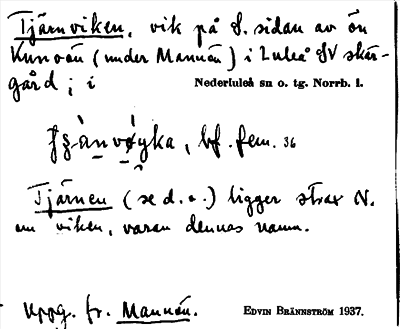 Tjärnviken, vik på S. sidan av ön
Kunoön (under Mannön) i Luleå SV skär-
gård; i Nederluleå sn o. tg. Norrb. l.
bf. fem. 36
Tjärnen (se d. o.) ligger strax N.
om viken, varav dennas namn.
Uppg. fr. Mannön. EDVIN BRÄNNSTRÖM 1937.